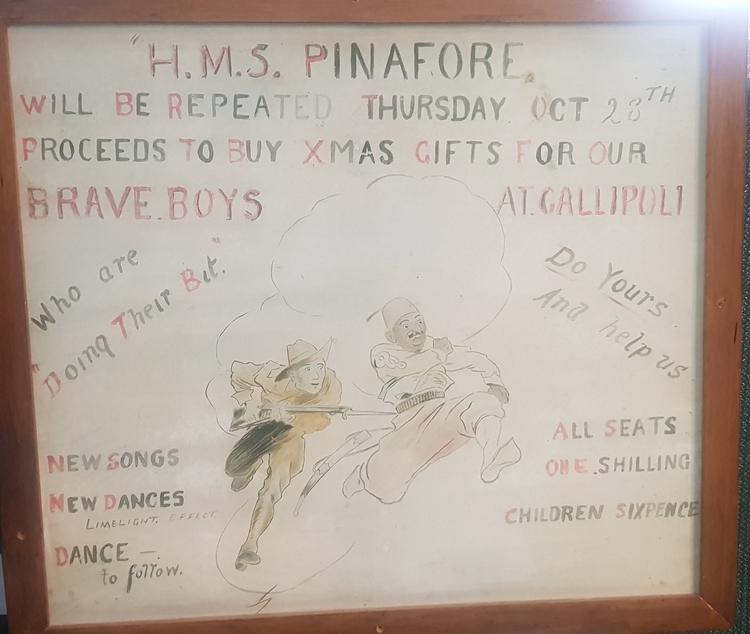 "H.M.S. PINAFORE.
WILL BE REPEATED THURSDAY OCT 28TH
PROCEEDS TO BUY XMAS GIFTS FOR OUR
BRAVE.BOYS AT.GALLIPOLI
Who are
"Doing Their Bit."
Do Yours
And help us
NEW SONGS
NEW DANCES
LIMELIGHT. EFFECT.
DANCE —.
to follow.
ALL SEATS
ONE.SHILLING
CHILDREN SIXPENCE